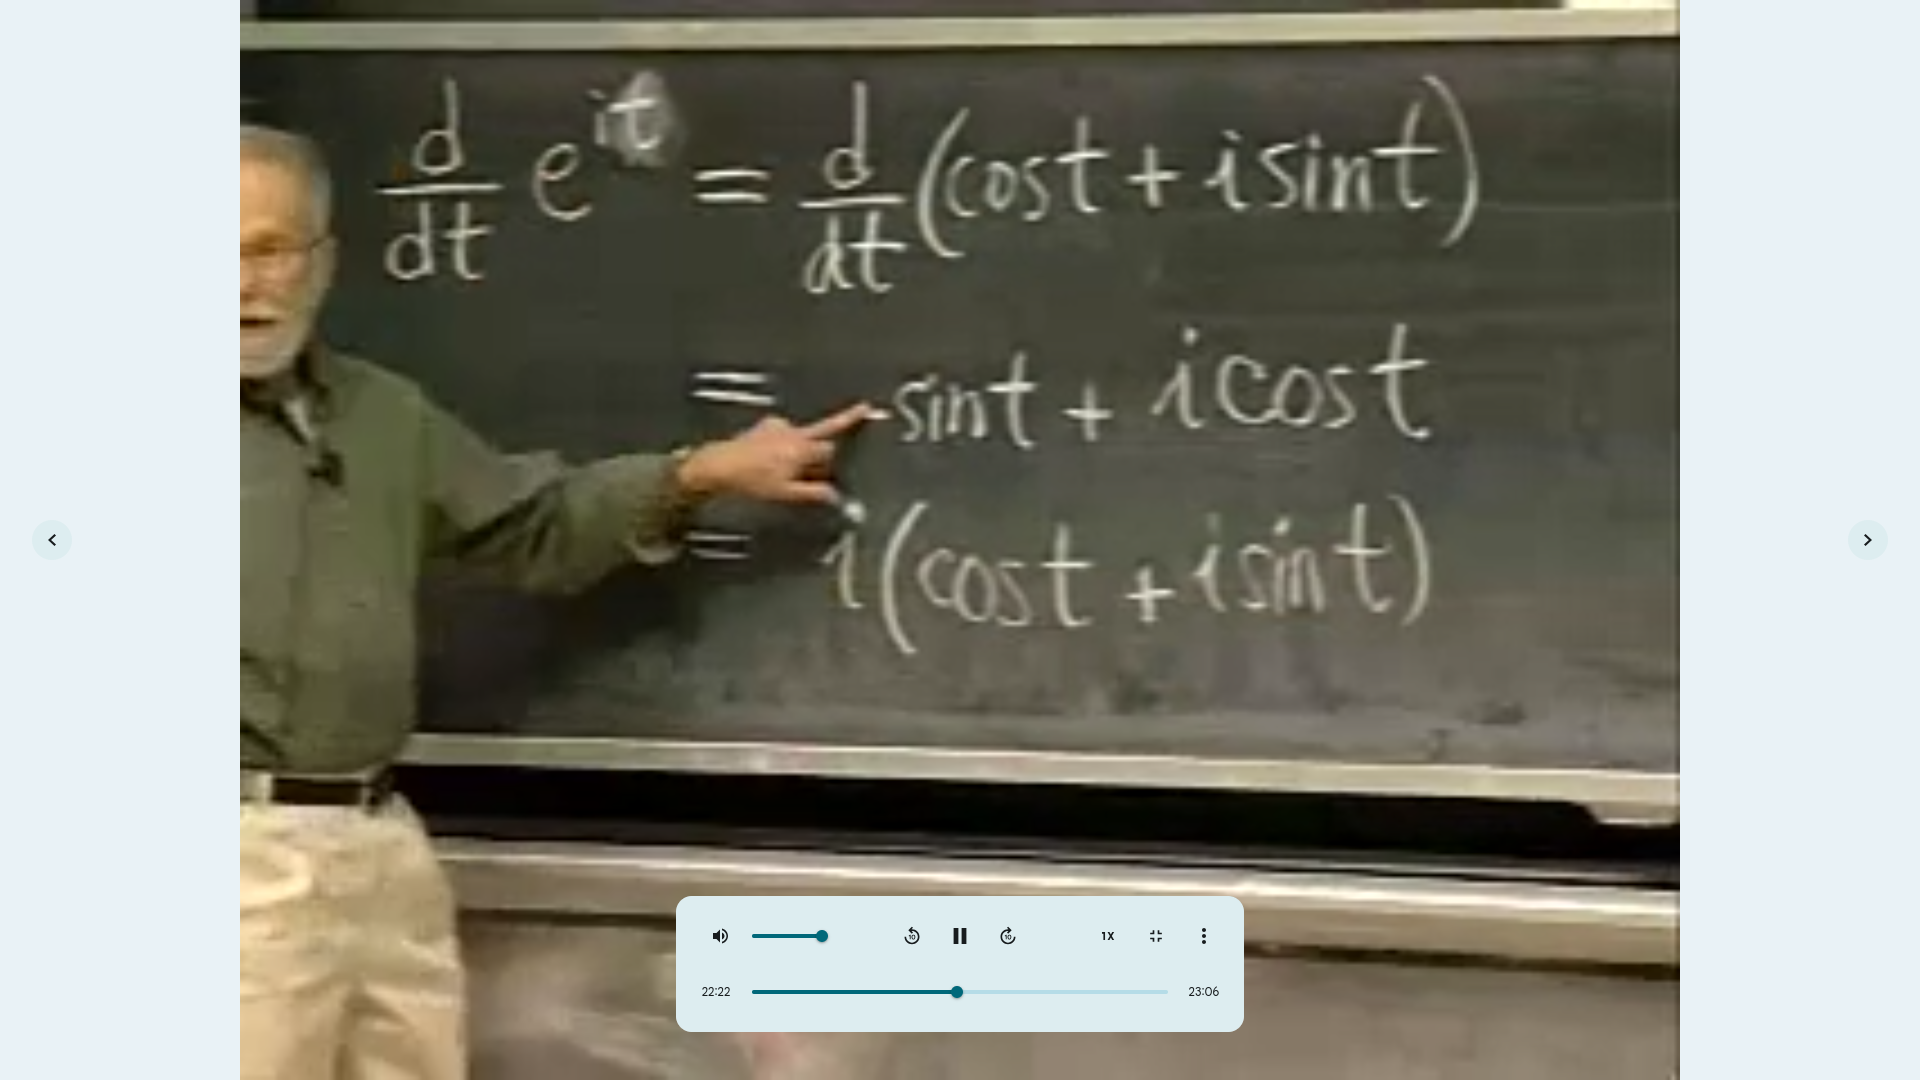 d/dt e^{it} = d/dt (cos t + i sin t)
= -sin t + i cos t
= i(cos t + i sin t)
10
10
1X
22:22
23:06